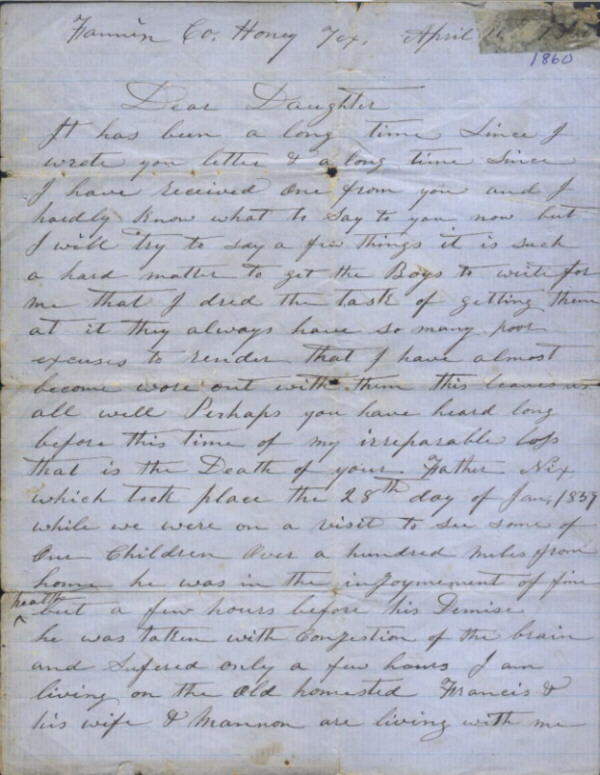 Fannin Co, Honey Tex, April
1860
Dear Daughter
It has been a long time since I
wrote you letter & a long time since
I have received one from you and I
hardly know what to say to you now but
I will try to say a few things it is such
a hard matter to get the Boys to write for
me that I dred the task of getting them
at it they always have so many poor
excuses to render that I have almost
become wore out with them this leaves us
all well Perhaps you have heard long
before this time of my irreparable loss
that is the Death of your Father Nix
which took place the 28th day of Jan, 1859
while we were on a visit to see some of
Our Children Over a hundred miles from
home he was in the injoymement of fine
health
^ but a few hours before his Demise
he was taken with Congestion of the brain
and sufered only a few hours I am
living on the old homested Francis &
his wife & Mannon are living with me